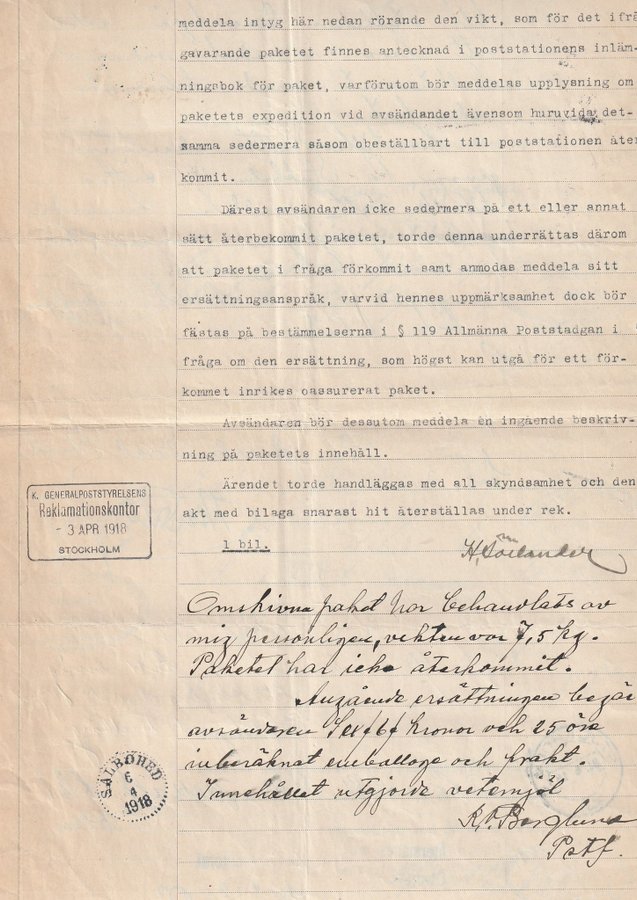 meddela intyg här nedan rörande den vikt, som för det ifrå
gavarande paketet finnes antecknad i poststationens inläm-
ningsbok för paket, varförutom bör meddelas upplysning om
paketets expedition vid avsändandet ävensom huruvida det-
samma sedermera såsom obeställbart till poststationen åter
kommit.
Därest avsändaren icke sedermera på ett eller annat
sätt återbekommit paketet, torde denna underrättas därom
att paketet i fråga förkommit samt anmodas meddela sitt
ersättningsanspråk, varvid hennes uppmärksamhet dock bör
fästas på bestämmelserna i § 119 Allmänna Poststadgan i
fråga om den ersättning, som högst kan utgå för ett för-
kommet inrikes oassurerat paket.
Avsändaren bör dessutom meddela en ingående beskriv-
ning på paketets innehåll.
Ärendet torde handläggas med all skyndsamhet och den
akt med bilaga snarast hit återställas under rek.
1 bil.
K. GENERALPOSTSTYRELSENS
Reklamationskontor
- 3 APR 1918
STOCKHOLM
Omskrivna paket har behandlats av
mig personligen, vikten var 7,5 kg.
Paketet har icke återkommit.
Angående ersättningen begär
avsändaren Sex /6/ kronor och 25 öre
inberäknat emballage och frakt.
Innehållet utgjorde vetemjöl
Berglund
Pstf.
SÄLBODED
6
4
1918